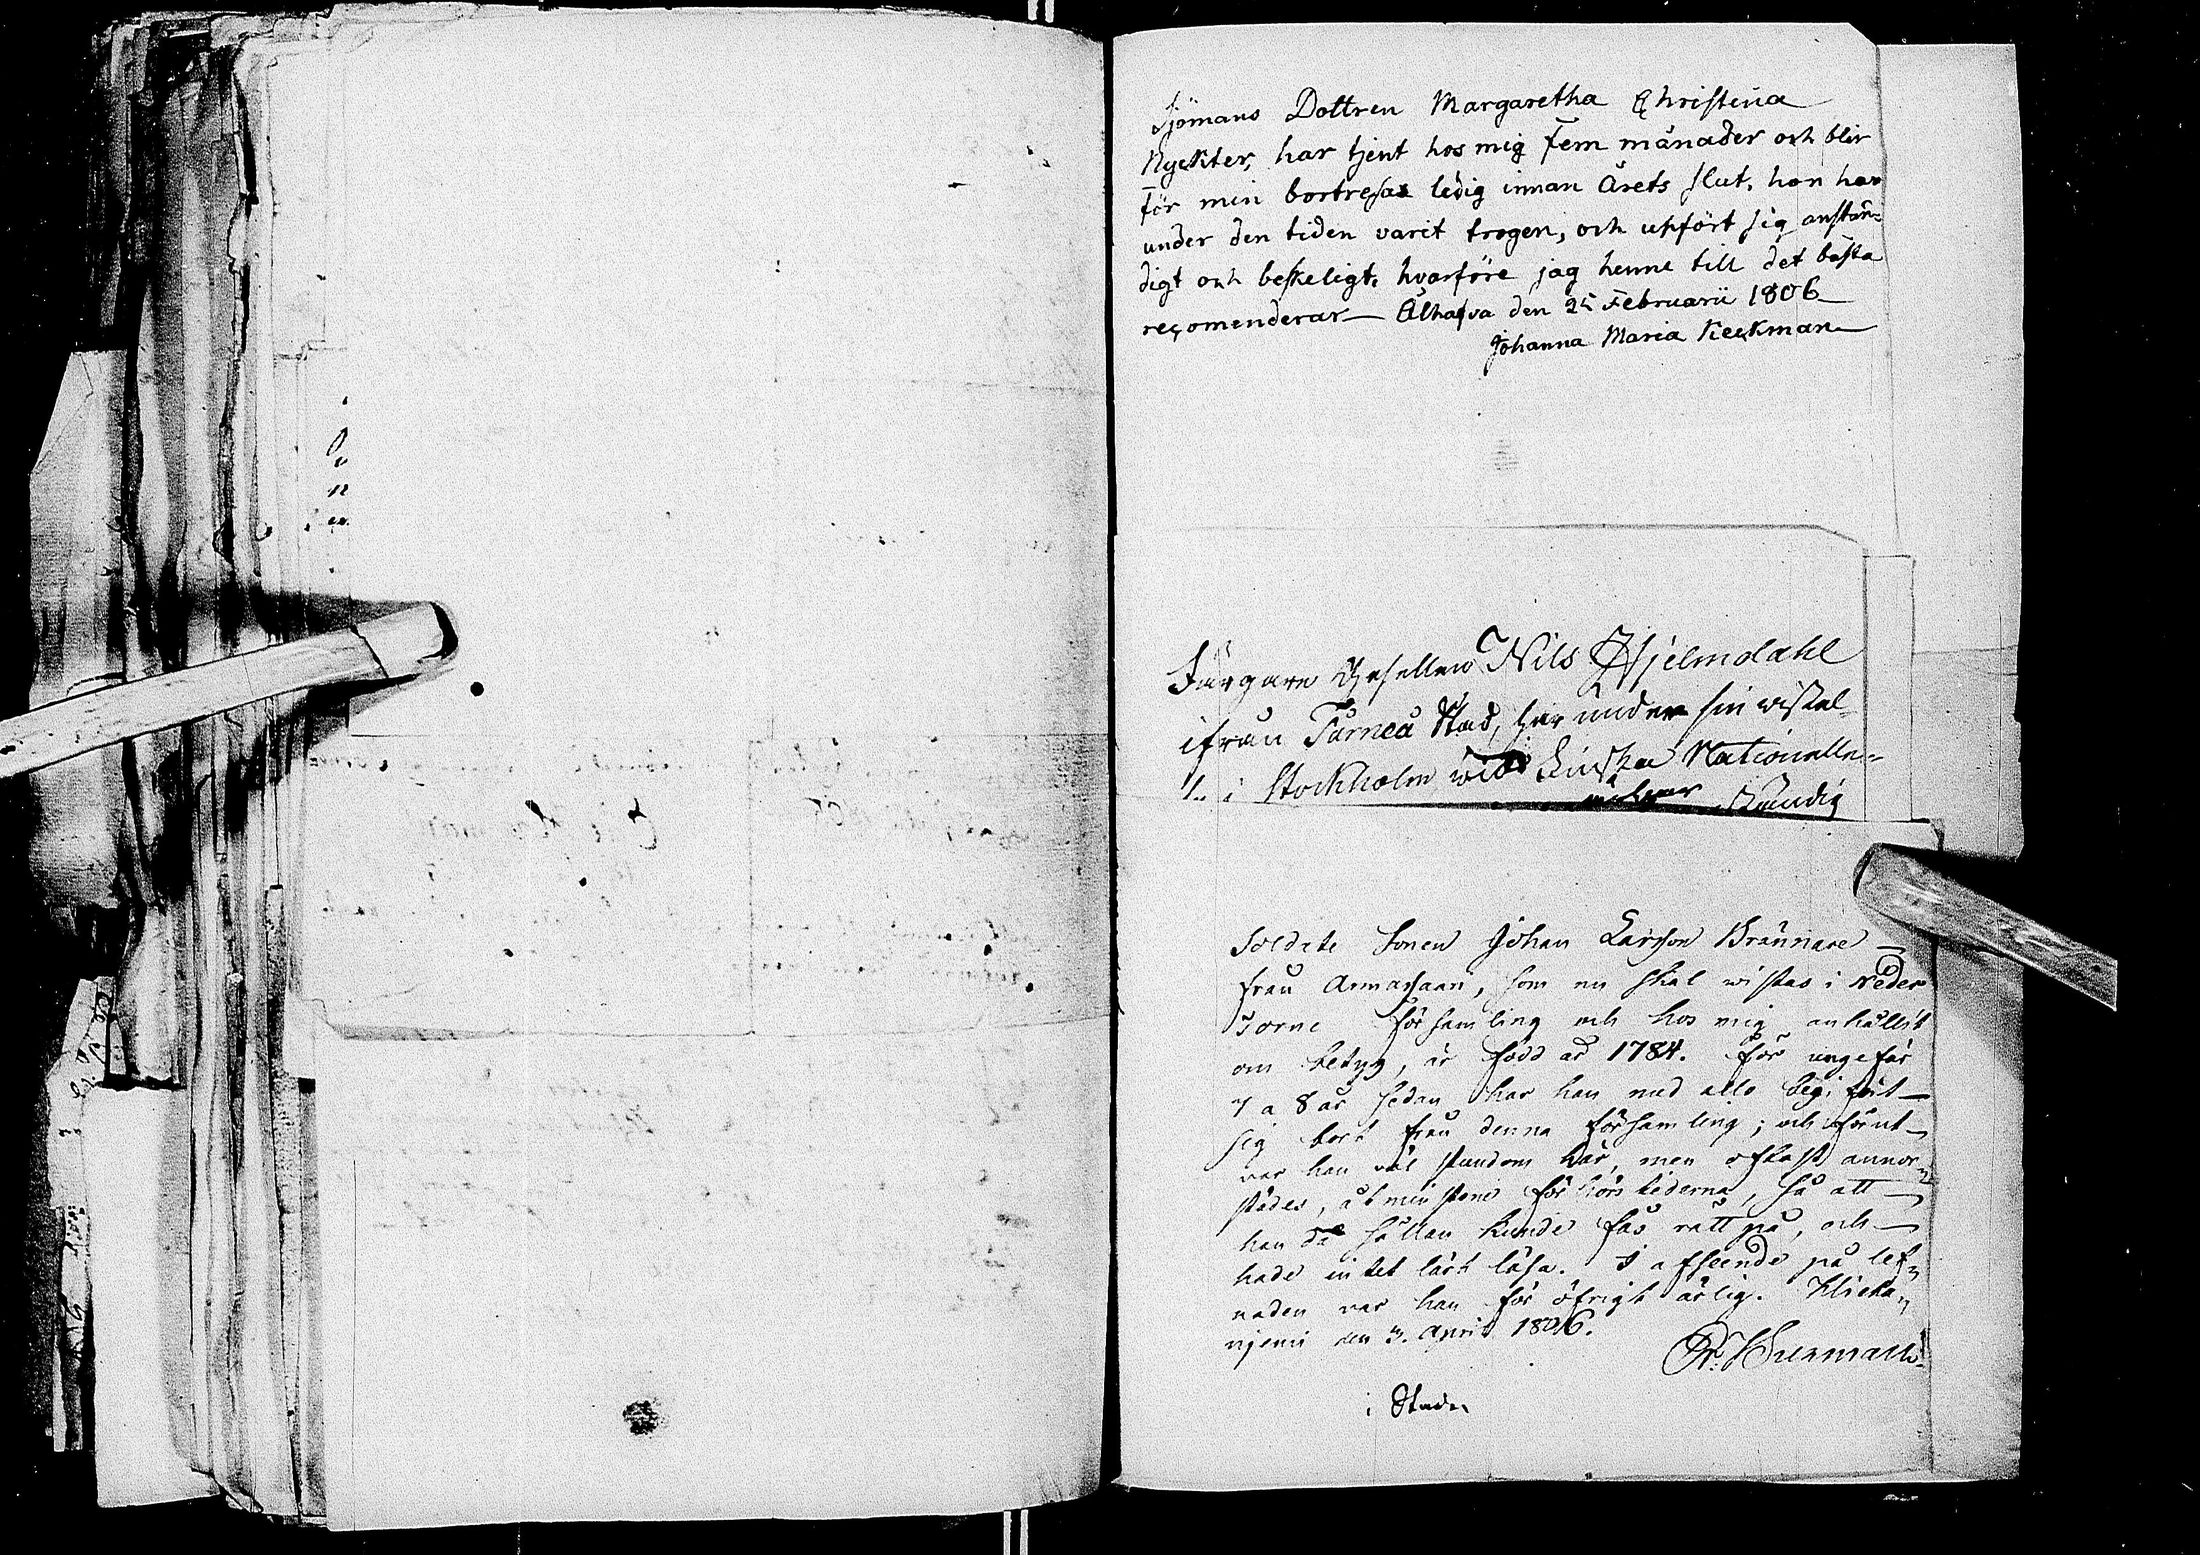 Sjömans Dottren Margaretha Christina
Nyckter, har tjent hos mig Fem månader och blir
för min bortresa ledig innan Årets slut, hon har
under den tiden varit trogen, och upfört sig anstän-
digt och beskeligt. hvarföre jag henne till det bästa
recomenderar Alhafva den 25 Februarii 1806
Johanna Maria Keckman
Färgare Gesellen Nils Hjelmdahl
ifrån Tårneå Stad, har under sin vistel-
i Stockholm wid Finska Nationella
ständig
Soldate Sonen Johan Larsson Brännare
från Armassaari, som nu skal wistas i Neder
Torne församling och hos mig anhållit
om betyg, är född år 1784. För ungefär
7 a 8 år sedan har han med allo begifvit
sig bort från denna församling; och förut
var han väl stundom här, men oftast annor-
städes, åtminstone förhörs tiderna, så att
han då sällan kunde fås rätt på, och
hade intet lärt läsa. I afseende på lef-
naden var han för öfrigt ärlig. Hieta-
njemi den 3. April 1806.
i Stade